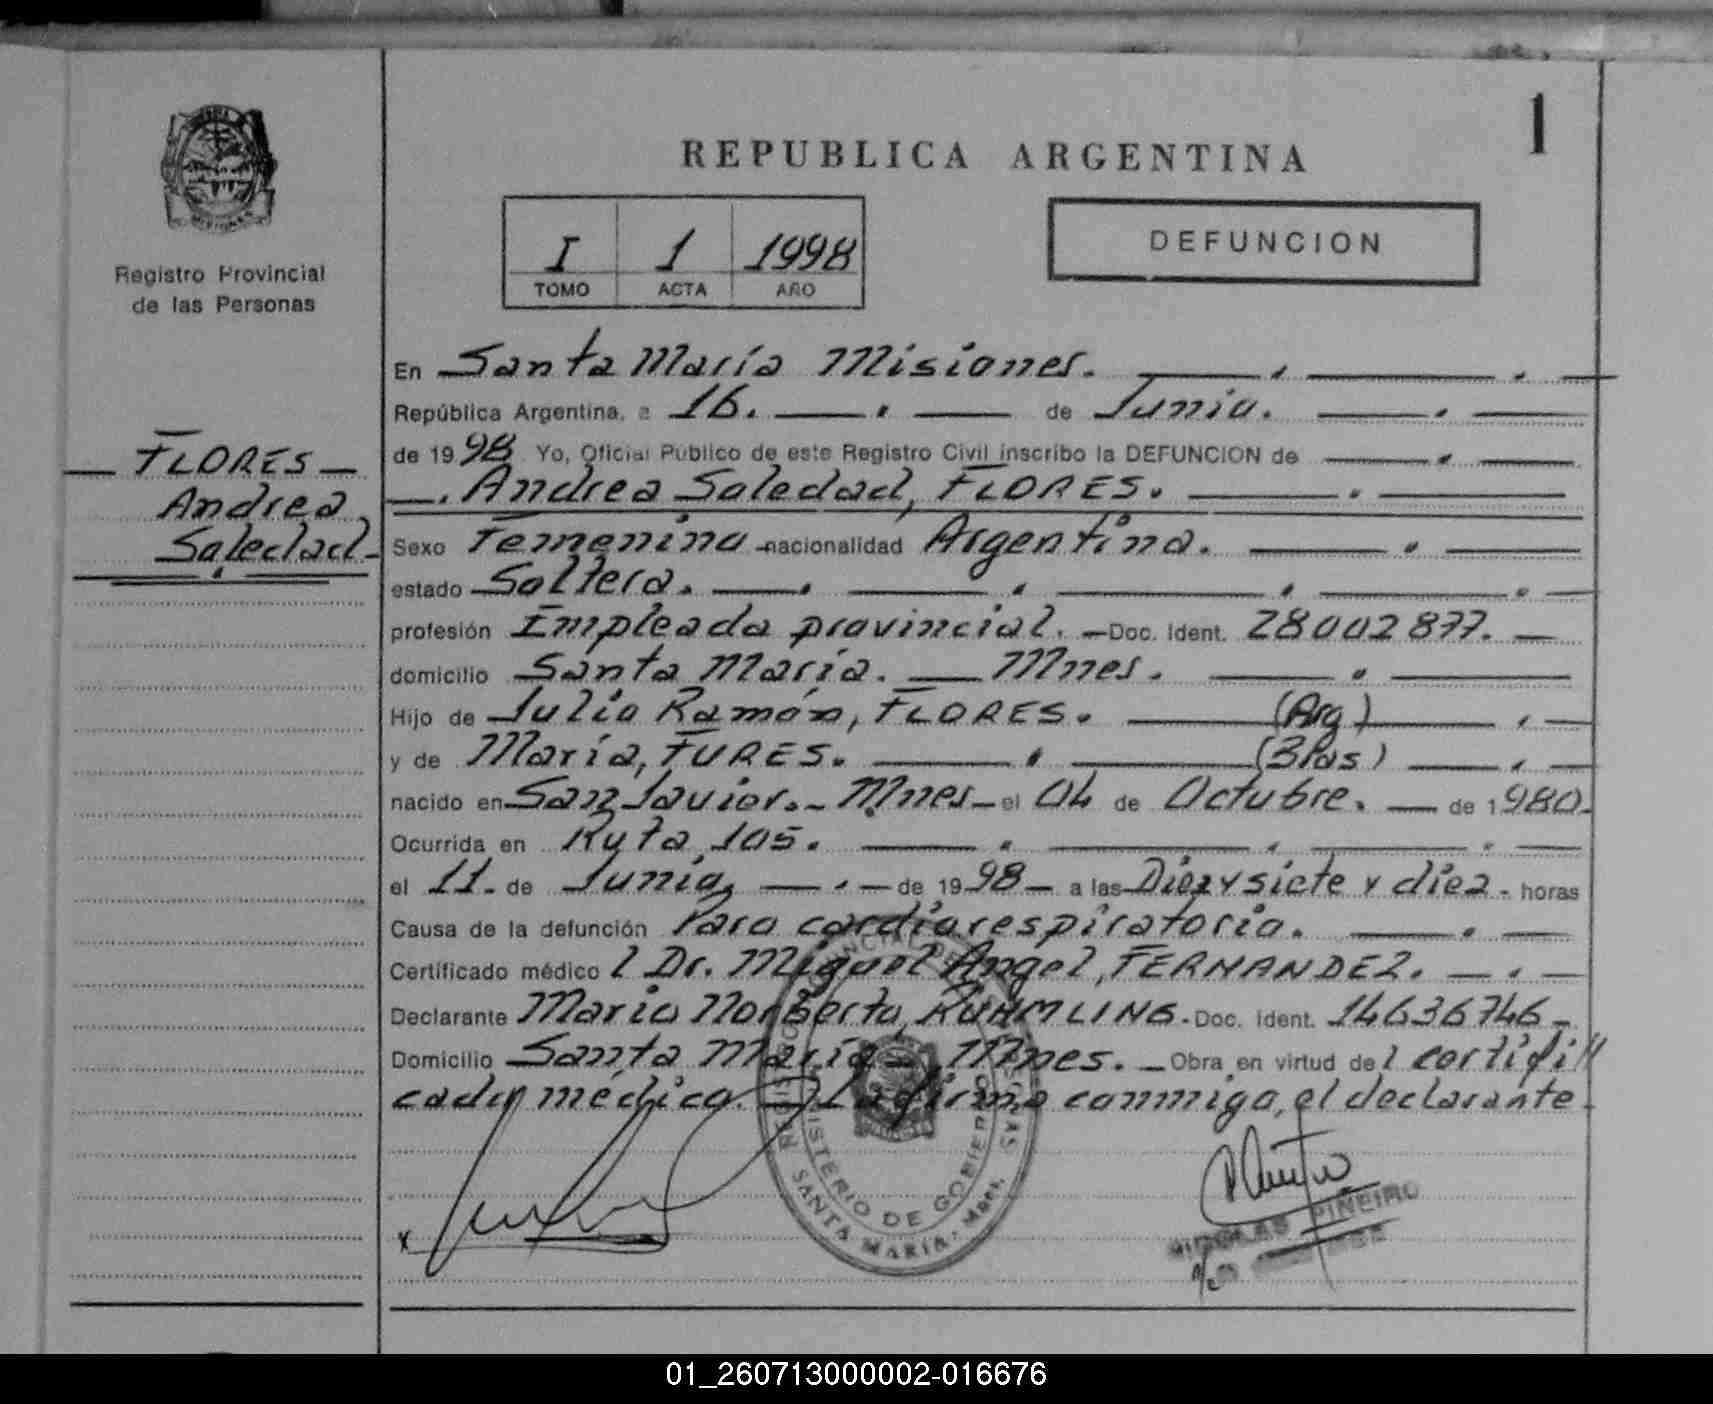 1
REPUBLICA ARGENTINA
I 1 1998
TOMO ACTA AÑO
DEFUNCION
Registro Provincial
de las Personas
FLORES
Andrea
Soledad
En Santa María Misiones.
República Argentina, a 16. de Junio.
de 1998. Yo, Oficial Público de este Registro Civil inscribo la DEFUNCION de
Andrea Soledad, FLORES.
Sexo Femenino nacionalidad Argentina.
estado Soltera.
profesión Empleada provincial. Doc. Ident. 28002877.
domicilio Santa María. Mnes.
Hijo de Julio Ramón, FLORES. (Arg)
y de María, FURES. (Bras)
nacido en San Javier. Mnes el 04 de Octubre. de 1980.
Ocurrida en Ruta 105.
el 11 de Junio, de 1998 a las Diez y siete y diez horas
Causa de la defunción Paro cardiorespiratorio.
Certificado médico Dr. Miguel Angel, FERNANDEZ.
Declarante Mario Norberto, KUHMLING. Doc. Ident. 14636746
Domicilio Santa María Mnes. Obra en virtud del certifi//
cado médico. La firma conmigo, el declarante
MINISTERIO DE GOBIERNO
SANTA MARIA - Mnes.
x
NICOLAS PIÑEIRO
01_260713000002-016676